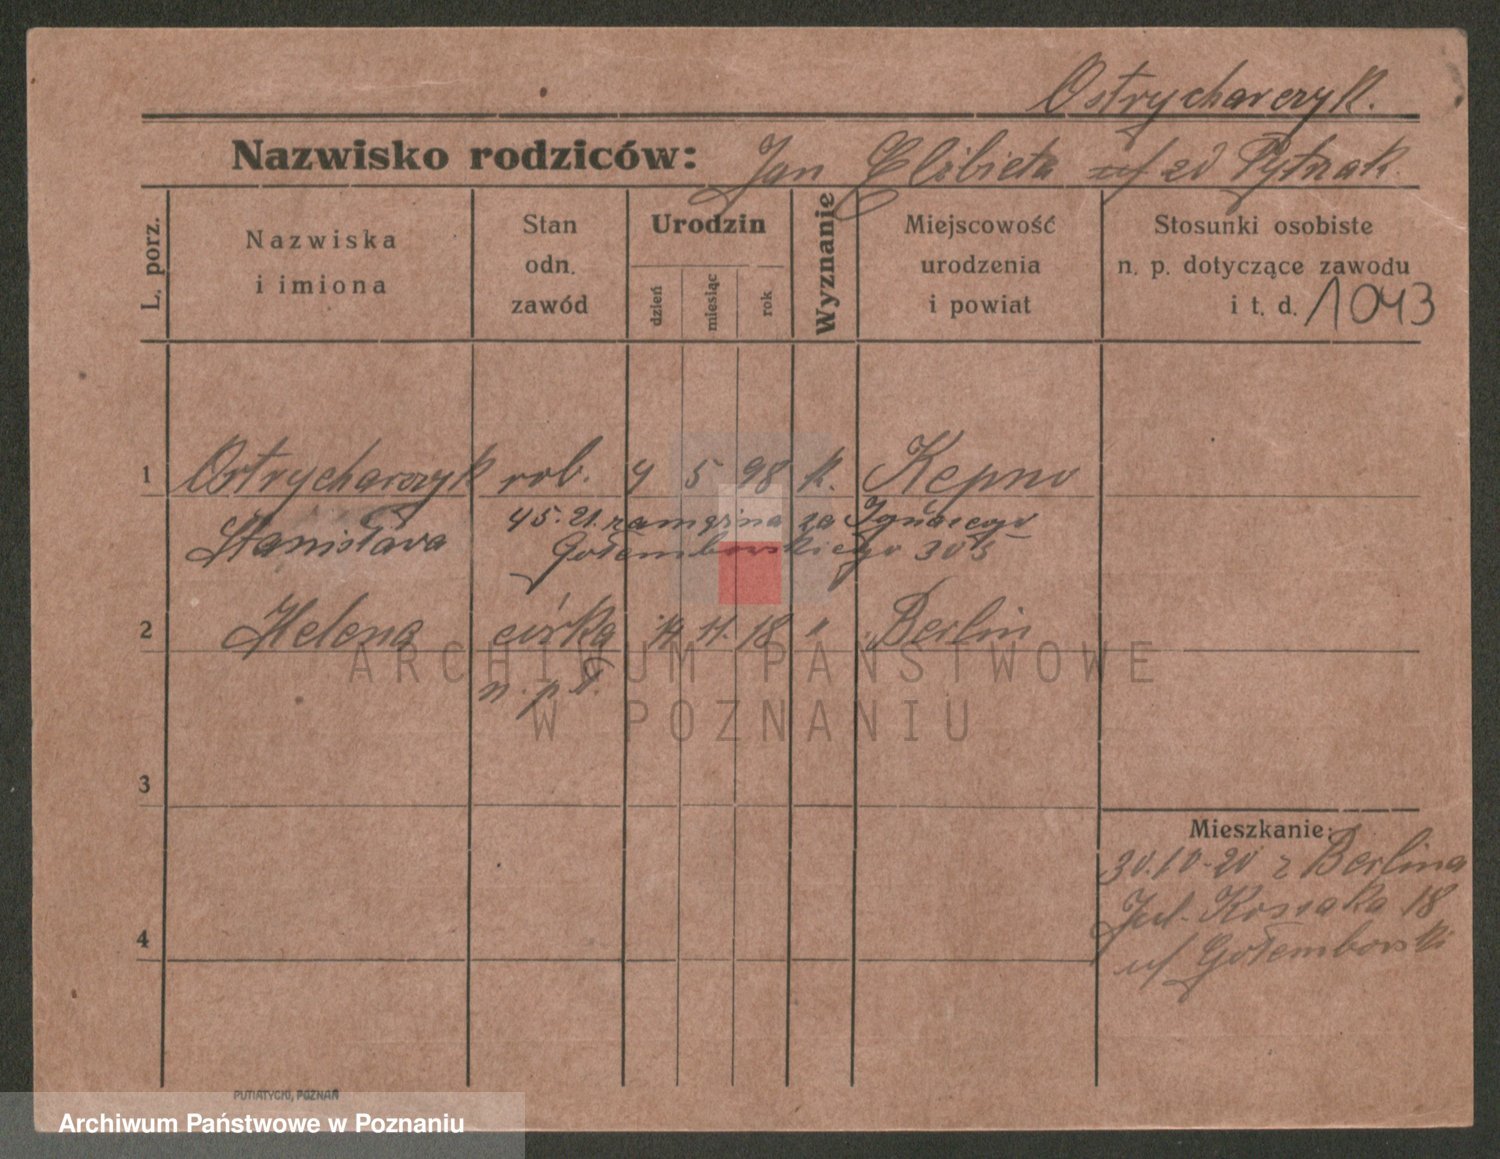 Ostrycharczyk.
Nazwisko rodziców: Jan Elżbieta zd Pytrzak.
L. porz.
Nazwiska
i imiona
Stan
odn.
zawód
Urodzin
dzień
miesiąc
rok
Wyznanie
Miejscowość
urodzenia
i powiat
Stosunki osobiste
n. p. dotyczące zawodu
i t. d. 1043
1 Ostrycharczyk rob. 4 5 98 k. Kępno
Stanisława 4 5. 21. zamężna za Ignacego
Gołembowskiego
2 Helena córka 18 " Berlin
n. p. ś.
3
4
Mieszkanie:
30.10-20 z Berlina
Jul. Kossaka 18
u/ Gołembowski
PUTIATYCKI, POZNAŃ
ARCHIWUM PAŃSTWOWE
W POZNANIU
Archiwum Państwowe w Poznaniu